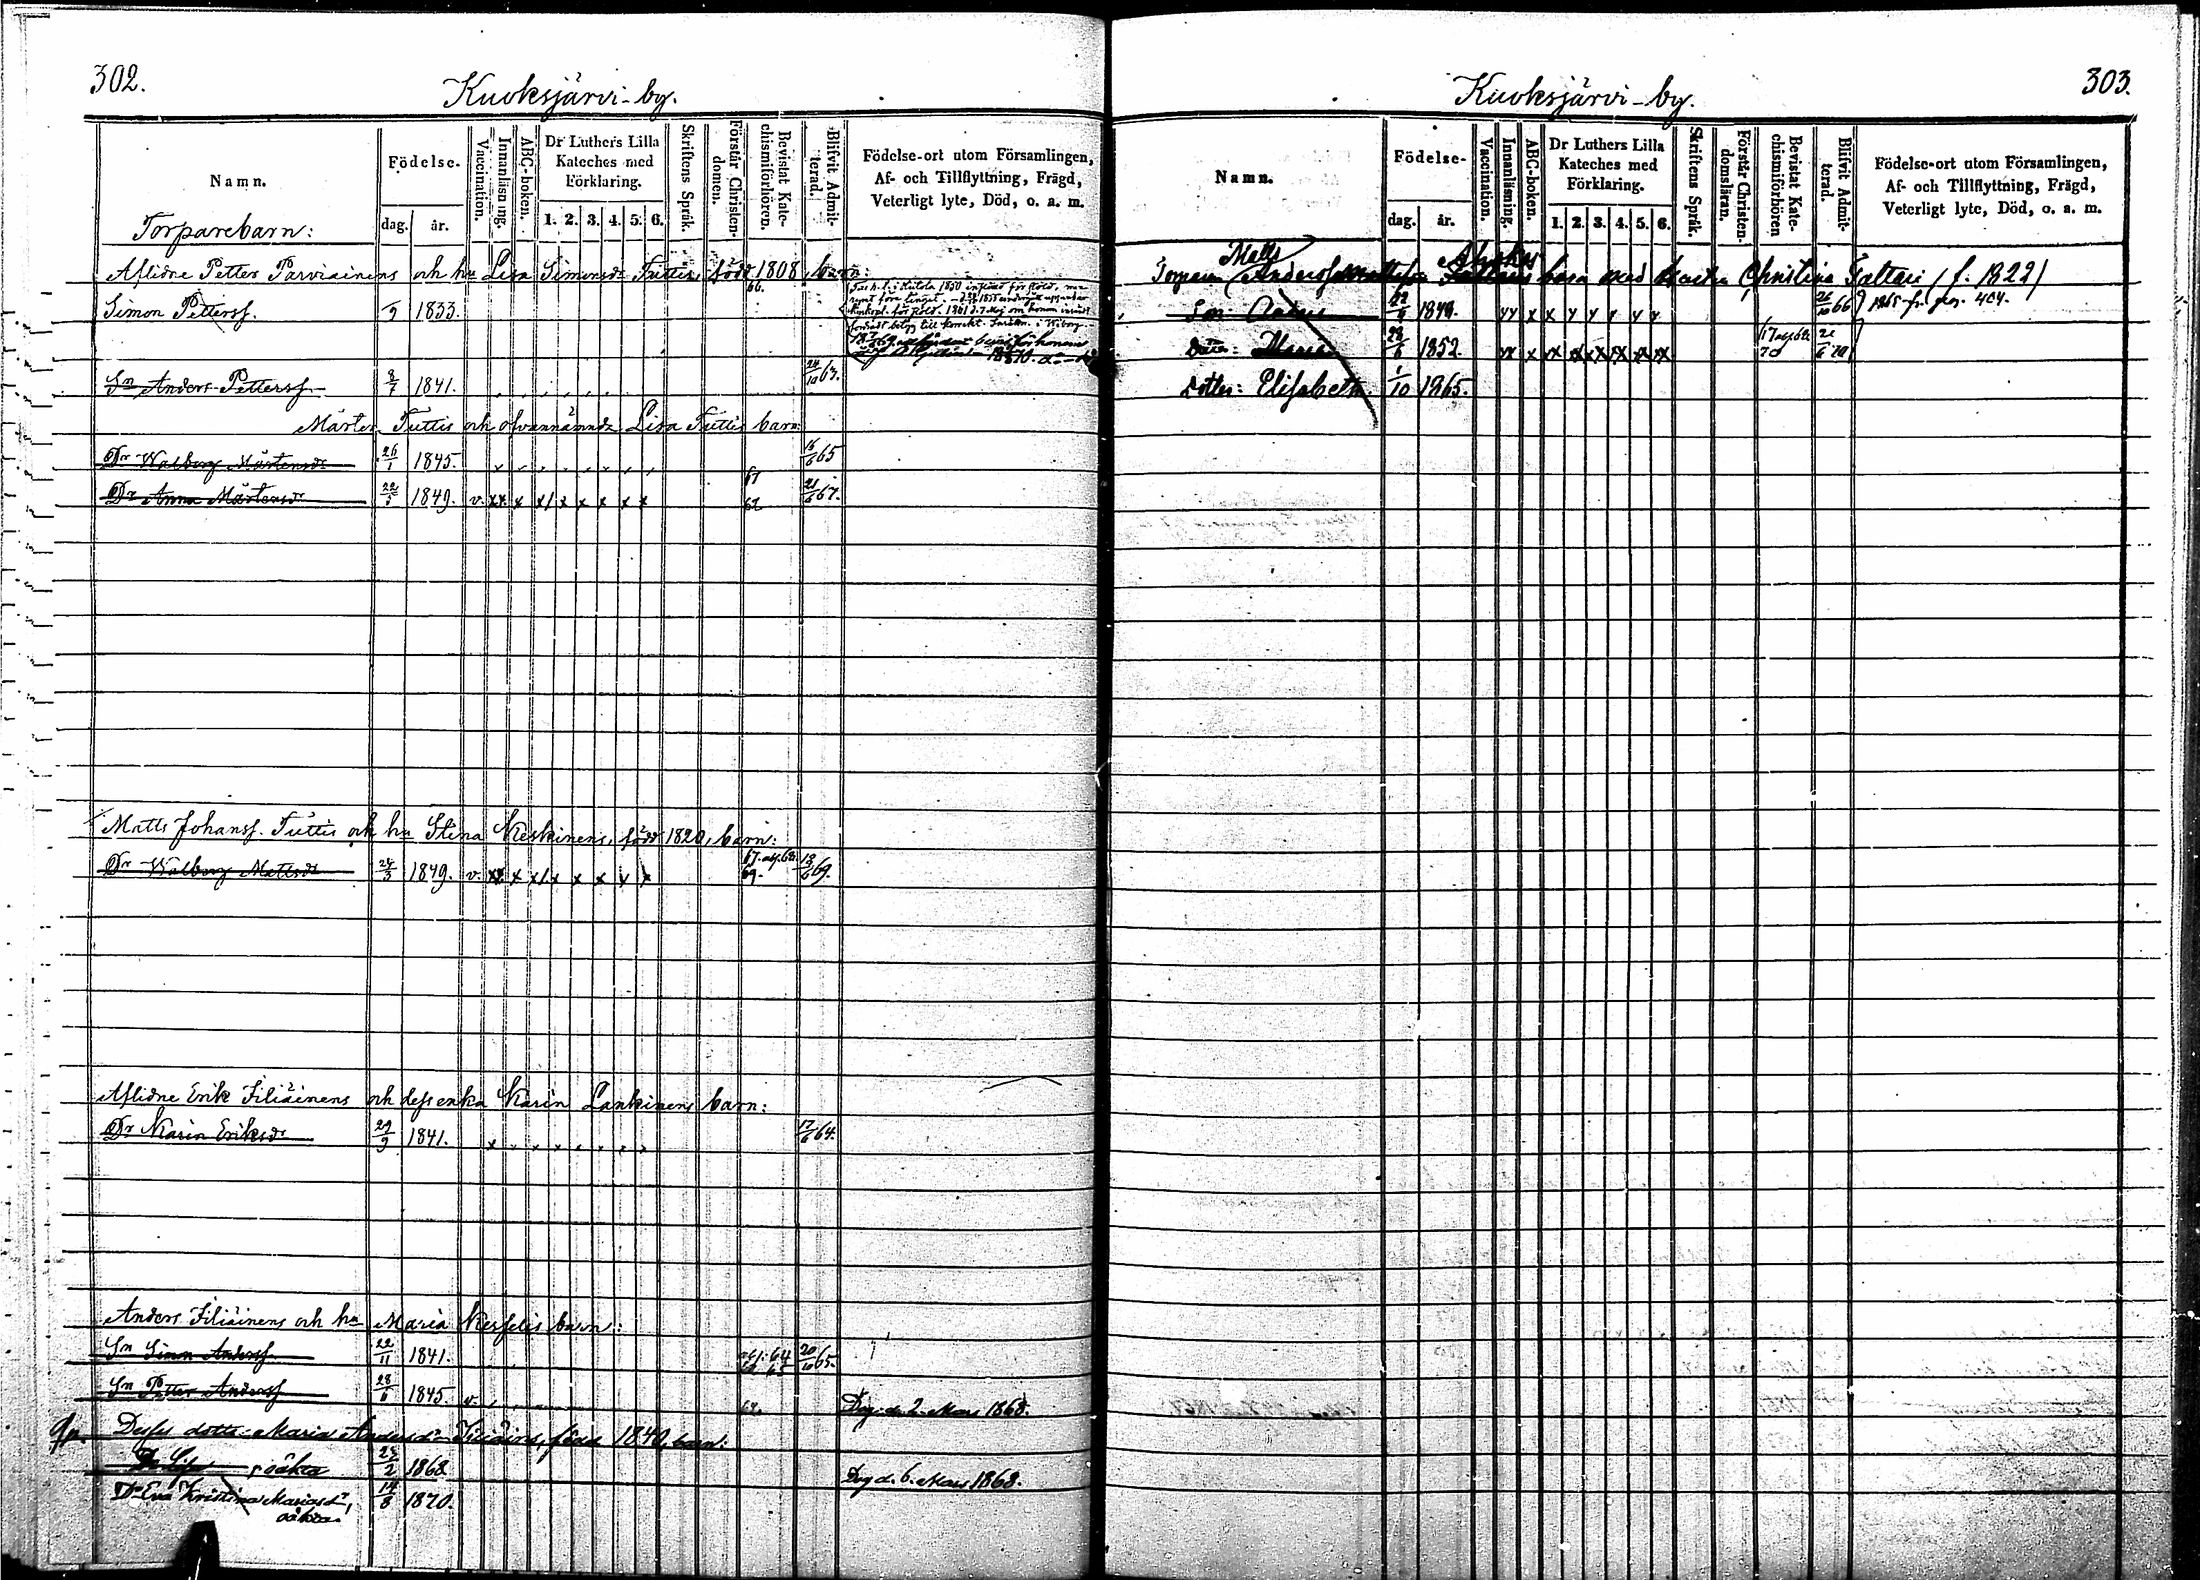 302.
Kuoksjärvi-by.
Namn.
Födelse-
dag. år.
Vaccination.
Innanläsning.
ABC-boken.
Dr Luthers Lilla Kateches med Förklaring.
1. 2. 3. 4. 5. 6.
Skriftens Språk.
Förstår Christendomen.
Bevistat Katechismiförhören.
Blifvit Admitterad.
Födelse-ort utom Församlingen,
Af- och Tillflyttning, Frägd,
Veterligt lyte, Död, o. a. m.
Torparebarn:
Aflidne Petter Parviainens och hu Lisa Simonsdr Tuttis, född 1808 barn:
Simon Petterss. 1833. 66.
Sn Anders Petterss. 8/7 1841. 24/10 63.
Mårten Tuttis och ofvannämnda Lisa Tuttis barn:
Dr Walborg Mårtensdr 26/1 1845. 16/6 65
Dr Anna Mårtensdr 22/1 1849. v. x x x x x x x x x 67 62 21/6 67.
Matts Johanss. Tuttis och hu Stina Keskinens, född 1820, barn:
Dr Walborg Mattsdr 24/3 1849. v. x x x x x x x x 67. abs. 68. 69. 13/6 69.
Aflidne Erik Iiliäinens och dess enka Karin Lankinens barn:
Dr Karin Eriksdr 29/9 1841. 17/6 64.
Anders Iiliäinens och hu Maria Kesselis barn:
Sn Simon Anderss. 22/11 1841. abs. 64 65 20/10 65.
Sn Petter Anderss 28/6 1845 v. Dog d. 2. Mars 1868.
Dess dotter Maria Andersdr Iiliäins, född 1840, barn:
Dr Lisa, oäkta 23/2 1868 Dog d. 6. Mars 1868.
Dr Eva Kristina Mariasdr, oäkta 14/8 1870.
303.
Kuoksjärvi-by.
Namn.
Födelse-
dag. år.
Vaccination.
Innanläsning.
ABC-boken.
Dr Luthers Lilla Kateches med Förklaring.
1. 2. 3. 4. 5. 6.
Skriftens Språk.
Förstår Christendomsläran.
Bevistat Katechismiförhören
Blifvit Admitterad.
Födelse-ort utom Församlingen,
Af- och Tillflyttning, Frägd,
Veterligt lyte, Död, o. a. m.
Matts
Torparen Anderss barn med hustru Christina Taltari (f. 1822)
Son 1849. 26/10 66 1865 fr. pag. 404.
Dotter: Maria 1852. 70
Dotter: Elisabeth 1/10 1865.